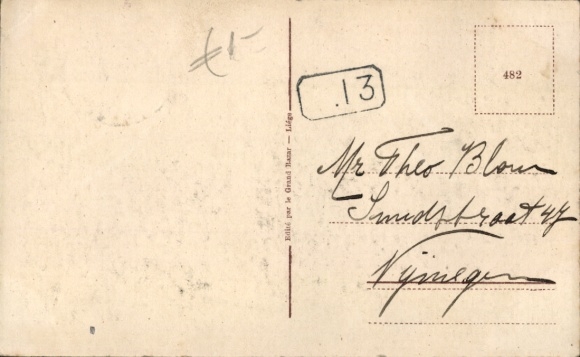 £1-
.13
482
Edité par le Grand Bazar — Liége
Mr Theo Blom
Smidtstraat 47
Nijmegen